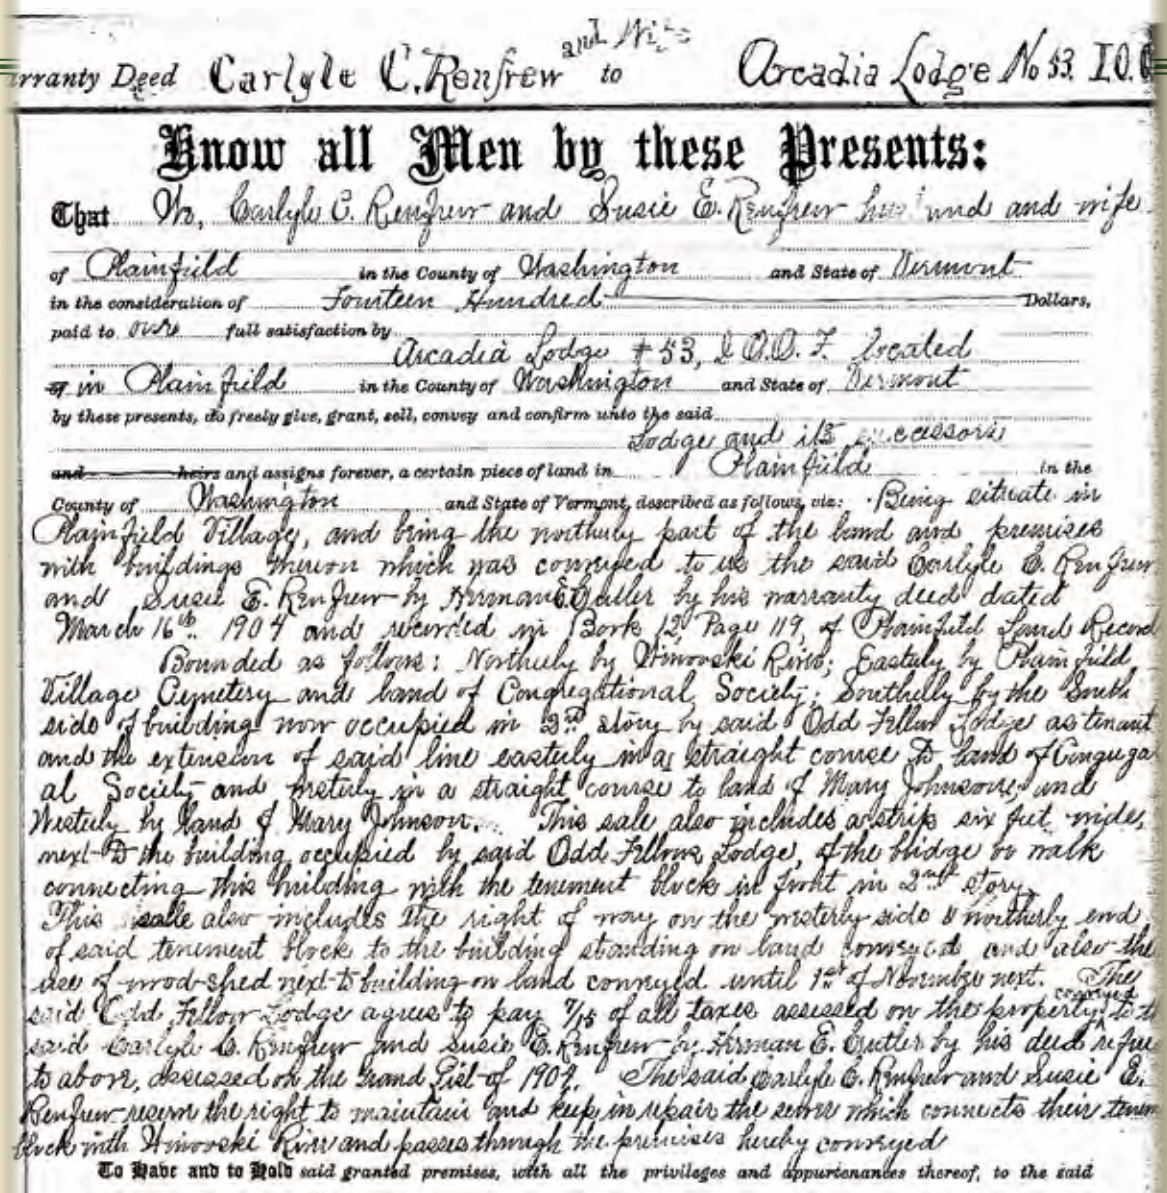 arranty Deed Carlyle C. Renfrew and Wife to Arcadia Lodge No 53. I.O.
Know all Men by these Presents:
That We, Carlyle C. Renfrew and Susie E. Renfrew husband and wife
of Plainfield in the County of Washington and State of Vermont
in the consideration of Fourteen Hundred Dollars,
paid to our full satisfaction by
Arcadia Lodge # 53, I O.O.F. located
of in Plainfield in the County of Washington and State of Vermont
by these presents, do freely give, grant, sell, convey and confirm unto the said
Lodge and its successors
and heirs and assigns forever, a certain piece of land in Plainfield in the
County of Washington and State of Vermont, described as follows, viz: Being situate in
Plainfield Village, and being the northerly part of the land and premises
with buildings thereon which was conveyed to us the said Carlyle C. Renfrew
and Susie E. Renfrew by Herman E. Cutler by his warranty deed dated
March 16th. 1904 and recorded in Book 12, Page 119, of Plainfield Land Record
Bounded as follows: Northerly by Winooski River; Easterly by Plainfield
Village Cemetery and land of Congregational Society; Southerly by the South
side of building now occupied in 2nd story by said Odd Fellow Lodge as tenant
and the extension of said line easterly in a straight course to land of Congrega
al Society and westerly in a straight course to land of Mary Johnson; and
Westerly by land of Mary Johnson. This sale also includes a strip six feet wide,
next to the building occupied by said Odd Fellows Lodge, of the bridge or walk
connecting this building with the tenement block in front in 2nd story.
This salle also includes the right of way on the westerly side & northerly end
of said tenement block to the building standing on land conveyed, and also the
use of wood-shed next to building on land conveyed until 1st of November next. The
said Odd Fellow Lodge agrees to pay 7/15 of all taxes assessed on the property conveyed to th
said Carlyle C. Renfrew and Susie E. Renfrew by Herman E. Cutler by his deed refer
to above, assessed on the Grand List of 1904. The said Carlyle C. Renfrew and Susie E.
Renfrew reserve the right to maintain and keep in repair the sewer which connects their tenem
block with Winooski River and passes through the premises hereby conveyed
To Have and to Hold said granted premises, with all the privileges and appurtenances thereof, to the said